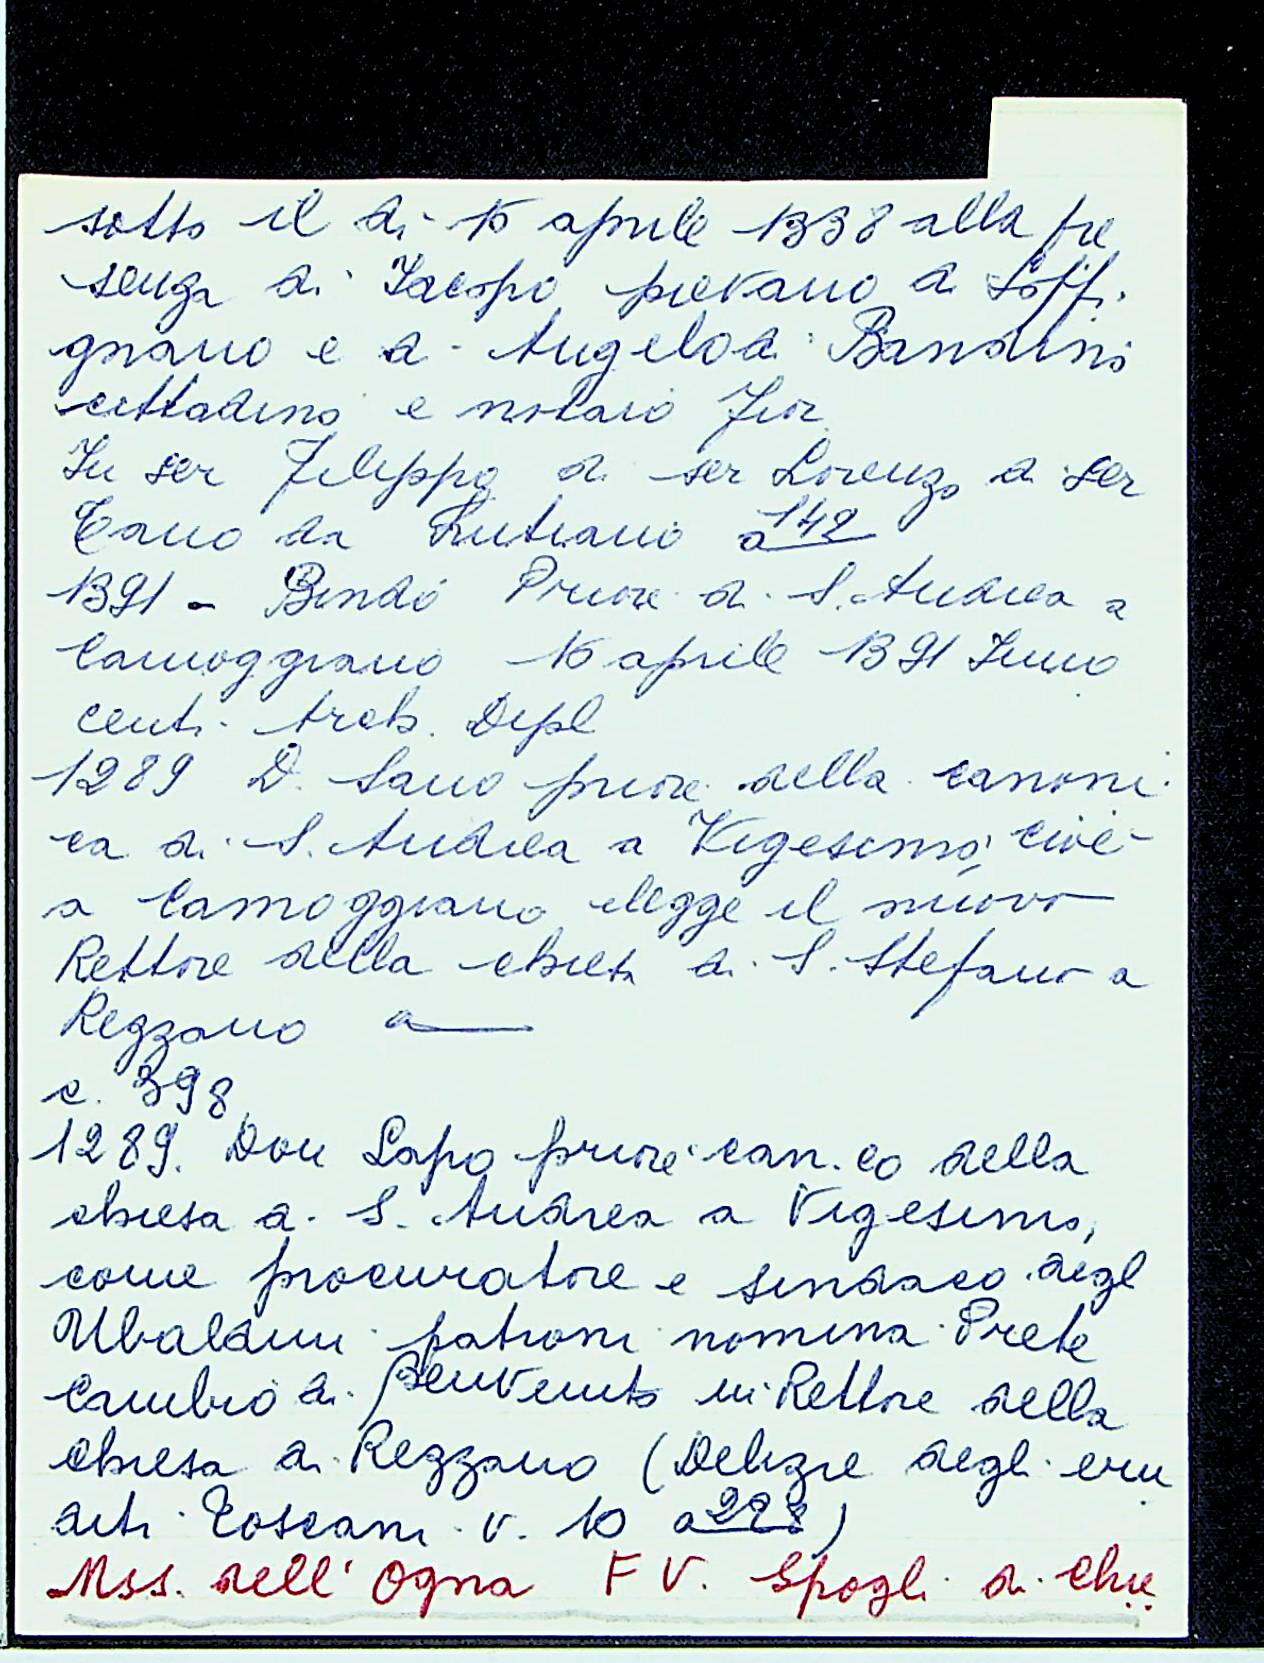 sotto il di 15 aprile 1338 alla pre
senza di Iacopo pievano di Soffi
gnano e di Angelo di Bandini
cittadino e notaio Fior
In ser Filippo di ser Lorenzo di ser
Tano da Lutiano a 142
1391 - Bindo Priore di S. Andrea a
Camoggiano 16 aprile 1391 Inno
centi Arch. Dipl
1289 D. Sano priore della canoni
ca di S. Andrea a Vigesimo, cioè
a Camoggiano elegge il nuovo
Rettore della chiesa di S. Stefano a
Rezzano a
c. 398
1289. Don Lapo priore can.co della
chiesa di S. Andrea a Vigesimo,
come procuratore e sindaco degl
Ubaldini patroni nomina Prete
Cambio di Benvenuto in Rettore della
chiesa di Rezzano (Delizie degli eru
diti Toscani v. 10 a 228)
Mss. dell'Ogna F V. Spogli di Chie